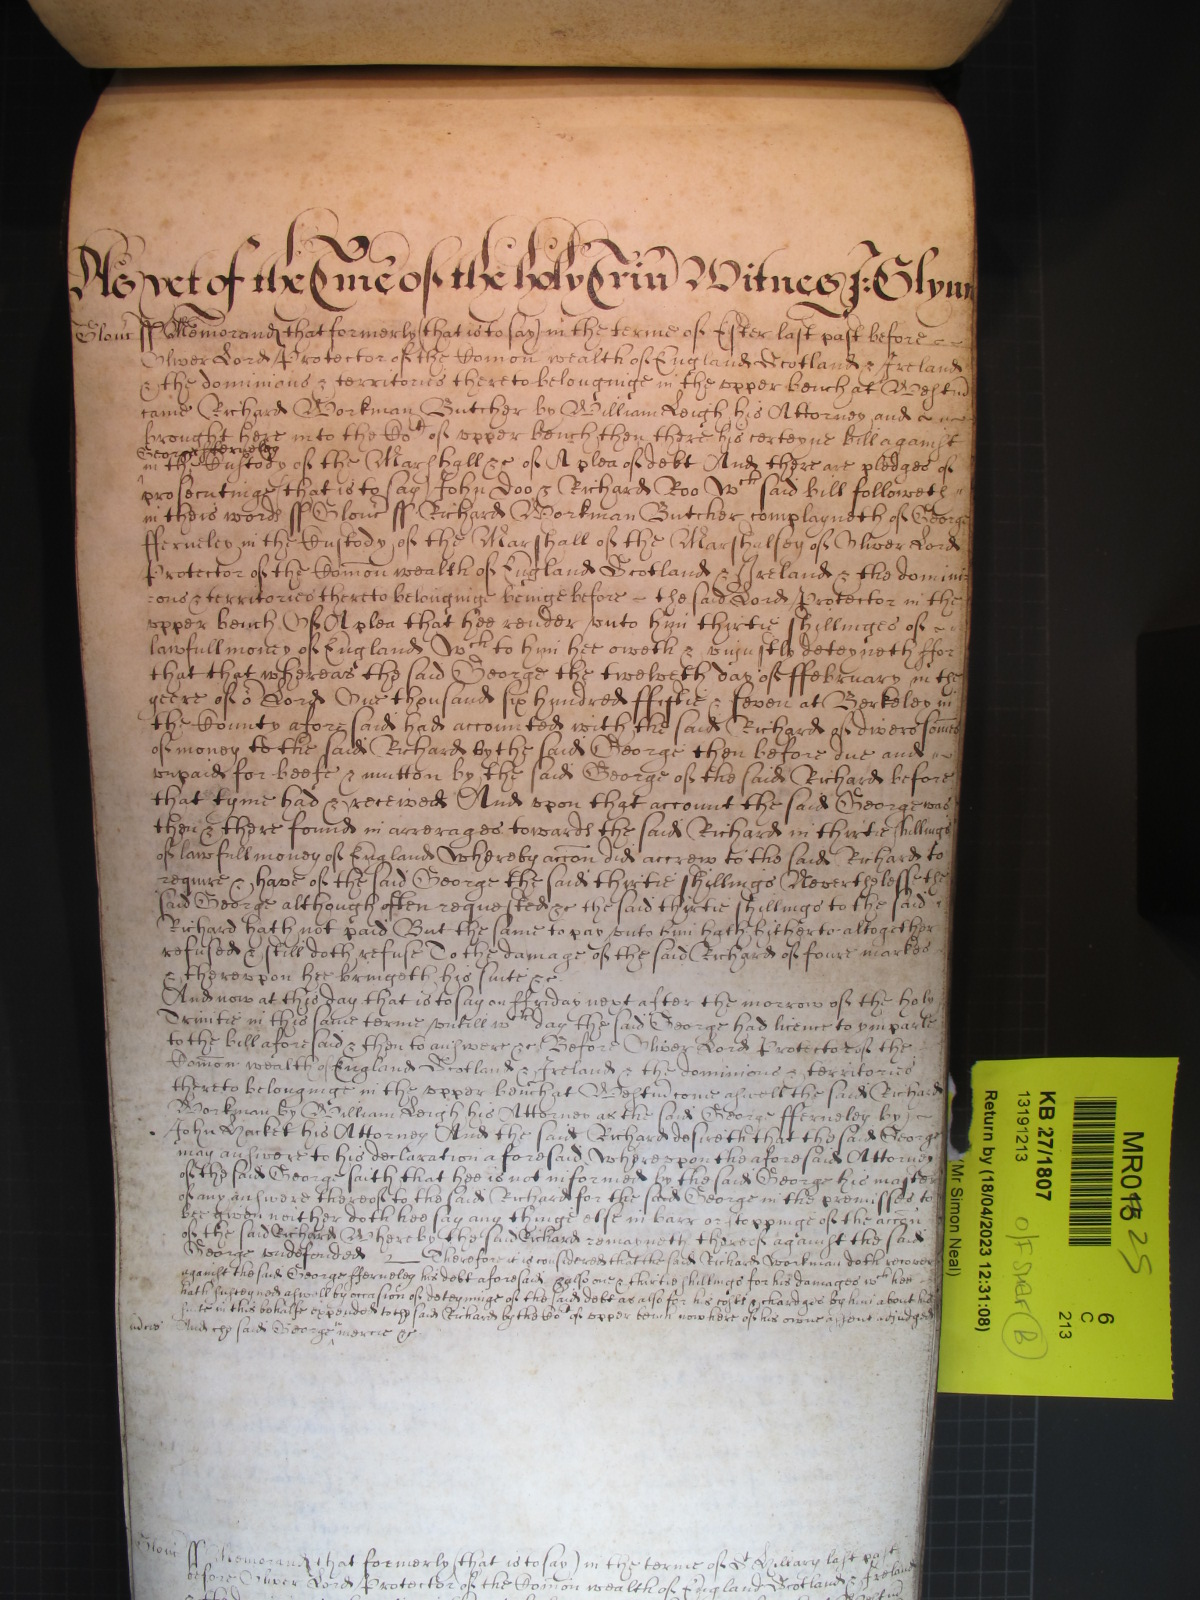 As yet of the Tme of the holy Trin Witnes J: Glynn
Glouc ss Memorand that formerly (that is to say) in the terme of Ester last past before
Oliver Lord Protector of the Comon wealth of England Scotland & Ireland
& the dominions & territories thereto belonginge in the upper bench at Westm
came Richard Workman Butcher by William Leigh his Attorney and
brought here into the Cot of upper bench then there his certeyne bill against
George fferneley
in the Custody of the Marshall &c of A plea of debt And there are pledges of
prosecutinge (that is to say) John Doo & Richard Roo Wch said bill followeth
in theis words ss Glouc ss Richard Workman Butcher complayneth of George
fferneley in the Custody of the Marshall of the Marshalsey of Oliver Lord
Protector of the Comon wealth of England Scotland & Ireland & the domini
ons & territories thereto belonginge beinge before the said Lord Protector in the
upper bench Of A plea that hee render unto him thirtie shillinges of
lawfull money of England Wch to him hee oweth & uniustly deteyneth ffor
that that whereas the said George the twelveth day of ffebruary in the
yeere of or Lord One thousand six hundred ffiftie & seven at Berkeley in
the County aforesaid had accounted with the said Richard of divers somes
of money to the said Richard by the said George then before due and
unpaid for beefe & mutton by the said George of the said Richard before
that tyme had & received And upon that account the said George was
then & there found in arrerages towards the said Richard in thirtie shillings
of lawfull money of England Whereby accon did accrew to the said Richard to
require & have of the said George the said thirtie shillings Neverthelesse the
said George although often requested &c the said thirtie shillings to the said
Richard hath not paid But the same to pay unto him hath hitherto altogether
refused & still doth refuse To the damage of the said Richard of foure markes
& thereupon hee bringeth his suite &c
And now at this day that is to say on ffriday next after the morrow of the holy
Trinitie in this same terme untill wch day the said George had licence to imparle
to the bill aforesaid & then to answere &c Before Oliver Lord Protector of the
Comon wealth of England Scotland & Ireland & the dominions & territories
thereto belonginge in the upper bench at Westm come aswell the said Richard
Workman by William Leigh his Attorney as the said George fferneley by
John Hacket his Attorney And the said Richard desireth that the said George
may answere to his declaration aforesaid Whereupon the aforesaid Attorney
of the said George saith that hee is not informed by the said George his master
of any answere thereof to the said Richard for the said George in the premisses to
bee given neither doth hee say any thinge else in barr or stoppinge of the accon
of the said Richard Whereby the said Richard remayneth thereof against the said
George undefended Therefore it is considered that the said Richard Workman doth recover
against the said George fferneley his debt aforesaid & also one & thirtie shillings for his damages wch hee
hath susteyned aswell by occasion of deteyninge of the said debt as also for his costs & chardges by him about his
suite in this behalfe expended to the said Richard by the Cot of upper bench now here of his owne assent adjudged
And the said George in mercie &c
Glouc ss Memorand (that formerly (that is to say) in the terme of St Hillary last past
before Oliver Lord Protector of the Comon wealth of England Scotland & Ireland
MR018 25
6
C
213
KB 27/1807
13191213
Return by (18/04/2023 12:31:08)
(Mr Simon Neal)